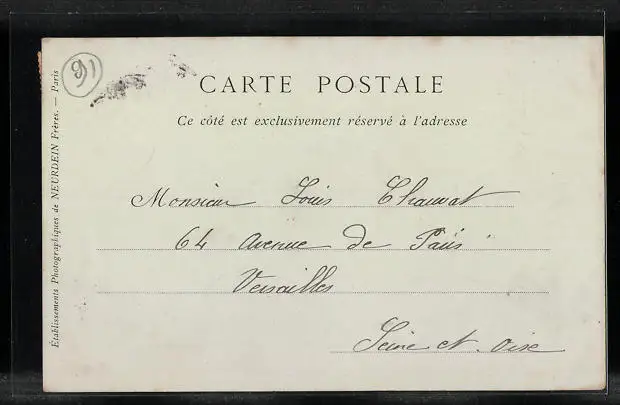 91
CARTE POSTALE
Ce côté est exclusivement réservé à l'adresse
Monsieur Louis Chauvat
64 Avenue de Paris
Versailles
Seine et Oise
Établissements Photographiques de NEURDEIN Frères. — Paris